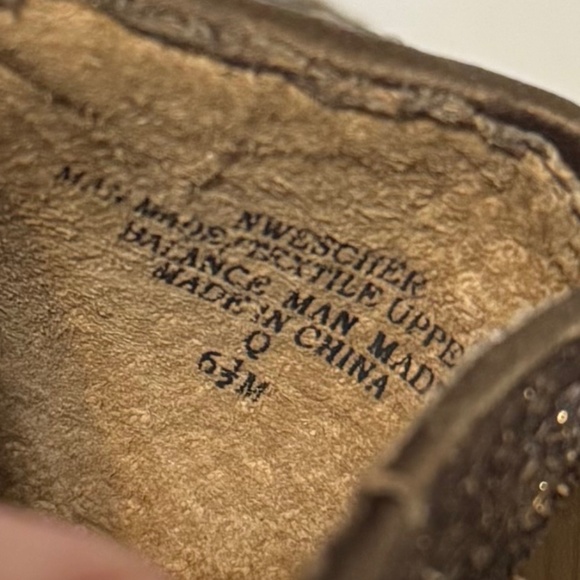 NWESCHER
MAN MADE/TEXTILE UPPE
BALANCE MAN MAD
MADE IN CHINA
Q
6½M